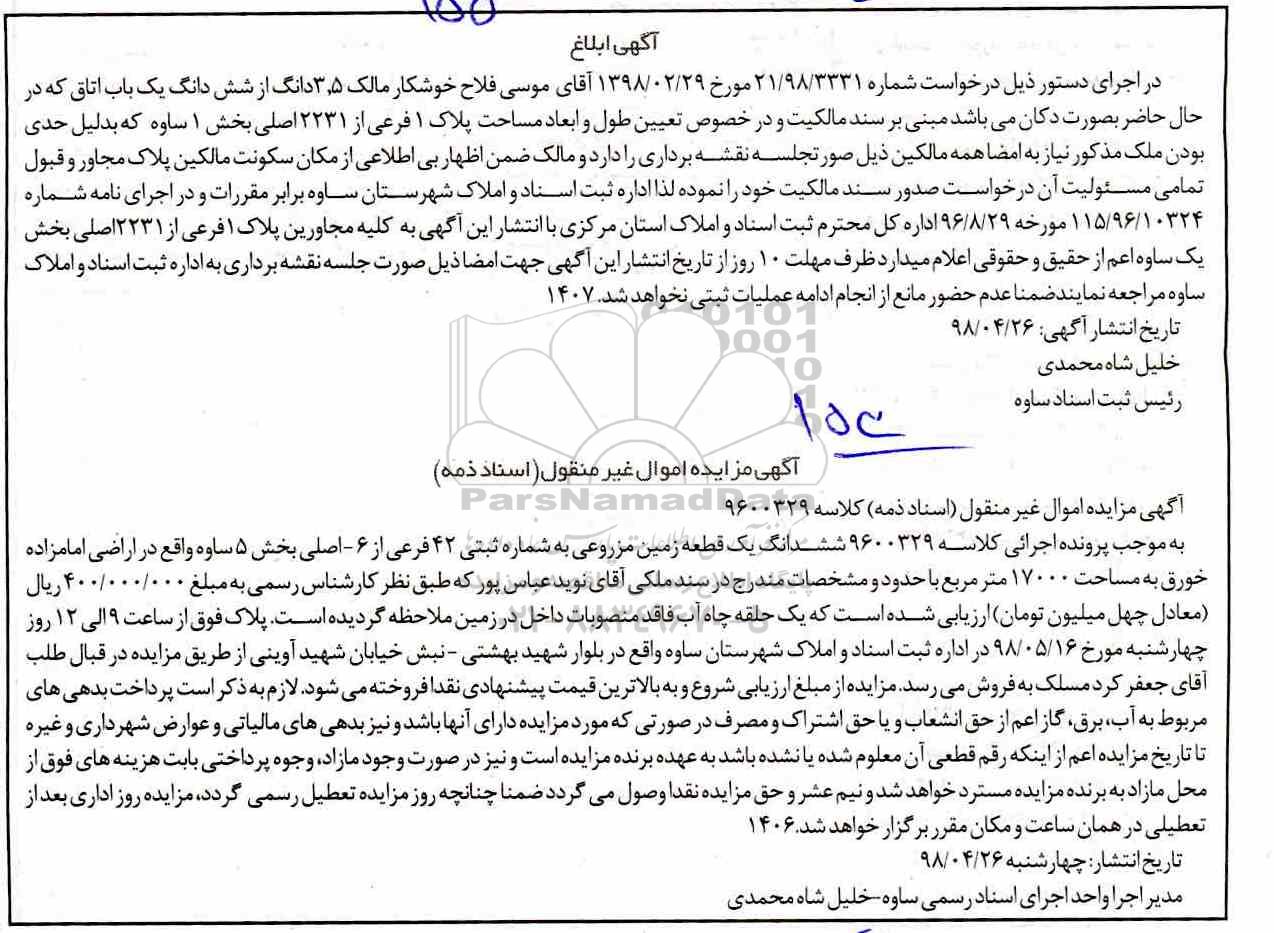 ۱۵۵
آگهی ابلاغ
در اجرای دستور ذیل درخواست شماره ۲۱/۹۸/۳۳۳۱ مورخ ۱۳۹۸/۰۲/۲۹ آقای موسی فلاح خوشکار مالک ۳,۵دانگ از شش دانگ یک باب اتاق که در
حال حاضر بصورت دکان می باشد مبنی بر سند مالکیت و در خصوص تعیین طول و ابعاد مساحت پلاک ۱ فرعی از ۲۲۳۱ اصلی بخش ۱ ساوه که بدلیل حدی
بودن ملک مذکور نیاز به امضا همه مالکین ذیل صورتجلسه نقشه برداری را دارد و مالک ضمن اظهار بی اطلاعی از مکان سکونت مالکین پلاک مجاور و قبول
تمامی مسئولیت آن درخواست صدور سند مالکیت خود را نموده لذا اداره ثبت اسناد و املاک شهرستان ساوه برابر مقررات و در اجرای نامه شماره
۱۱۵/۹۶/۱۰۳۲۴ مورخه ۹۶/۸/۲۹ اداره کل محترم ثبت اسناد و املاک استان مرکزی با انتشار این آگهی به کلیه مجاورین پلاک ۱ فرعی از ۲۲۳۱اصلی بخش
یک ساوه اعم از حقیق و حقوقی اعلام میدارد ظرف مهلت ۱۰ روز از تاریخ انتشار این آگهی جهت امضا ذیل صورت جلسه نقشه برداری به اداره ثبت اسناد و املاک
ساوه مراجعه نمایند ضمنا عدم حضور مانع از انجام ادامه عملیات ثبتی نخواهد شد. ۱۴۰۷
تاریخ انتشار آگهی: ۹۸/۰۴/۲۶
خلیل شاه محمدی
رئیس ثبت اسناد ساوه
آگهی مزایده اموال غیر منقول (اسناد ذمه)
ParsNamadData
آگهی مزایده اموال غیر منقول (اسناد ذمه) کلاسه ۹۶۰۰۳۲۹
به موجب پرونده اجرائی کلاسه ۹۶۰۰۳۲۹ ششدانگ یک قطعه زمین مزروعی به شماره ثبتی ۴۲ فرعی از ۶-اصلی بخش ۵ ساوه واقع در اراضی امامزاده
خورق به مساحت ۱۷۰۰۰ متر مربع با حدود و مشخصات مندرج در سند ملکی آقای نوید عباس پور که طبق نظر کارشناس رسمی به مبلغ ۴۰۰/۰۰۰/۰۰۰ ریال
(معادل چهل میلیون تومان) ارزیابی شده است که یک حلقه چاه آب فاقد منصوبات داخل در زمین ملاحظه گردیده است. پلاک فوق از ساعت ۹ الی ۱۲ روز
چهارشنبه مورخ ۹۸/۰۵/۱۶ در اداره ثبت اسناد و املاک شهرستان ساوه واقع در بلوار شهید بهشتی -نبش خیابان شهید آوینی از طریق مزایده در قبال طلب
آقای جعفر کرد مسلک به فروش می رسد. مزایده از مبلغ ارزیابی شروع و به بالاترین قیمت پیشنهادی نقدا فروخته می شود. لازم به ذکر است پرداخت بدهی های
مربوط به آب، برق، گاز اعم از حق انشعاب و یا حق اشتراک و مصرف در صورتی که مورد مزایده دارای آنها باشد و نیز بدهی های مالیاتی و عوارض شهرداری و غیره
تا تاریخ مزایده اعم از اینکه رقم قطعی آن معلوم شده یا نشده باشد به عهده برنده مزایده است و نیز در صورت وجود مازاد، وجوه پرداختی بابت هزینه های فوق از
محل مازاد به برنده مزایده مسترد خواهد شد و نیم عشر و حق مزایده نقدا وصول می گردد ضمنا چنانچه روز مزایده تعطیل رسمی گردد، مزایده روز اداری بعد از
تعطیلی در همان ساعت و مکان مقرر برگزار خواهد شد. ۱۴۰۶
تاریخ انتشار: چهارشنبه ۹۸/۰۴/۲۶
مدیر اجرا واحد اجرای اسناد رسمی ساوه-خلیل شاه محمدی